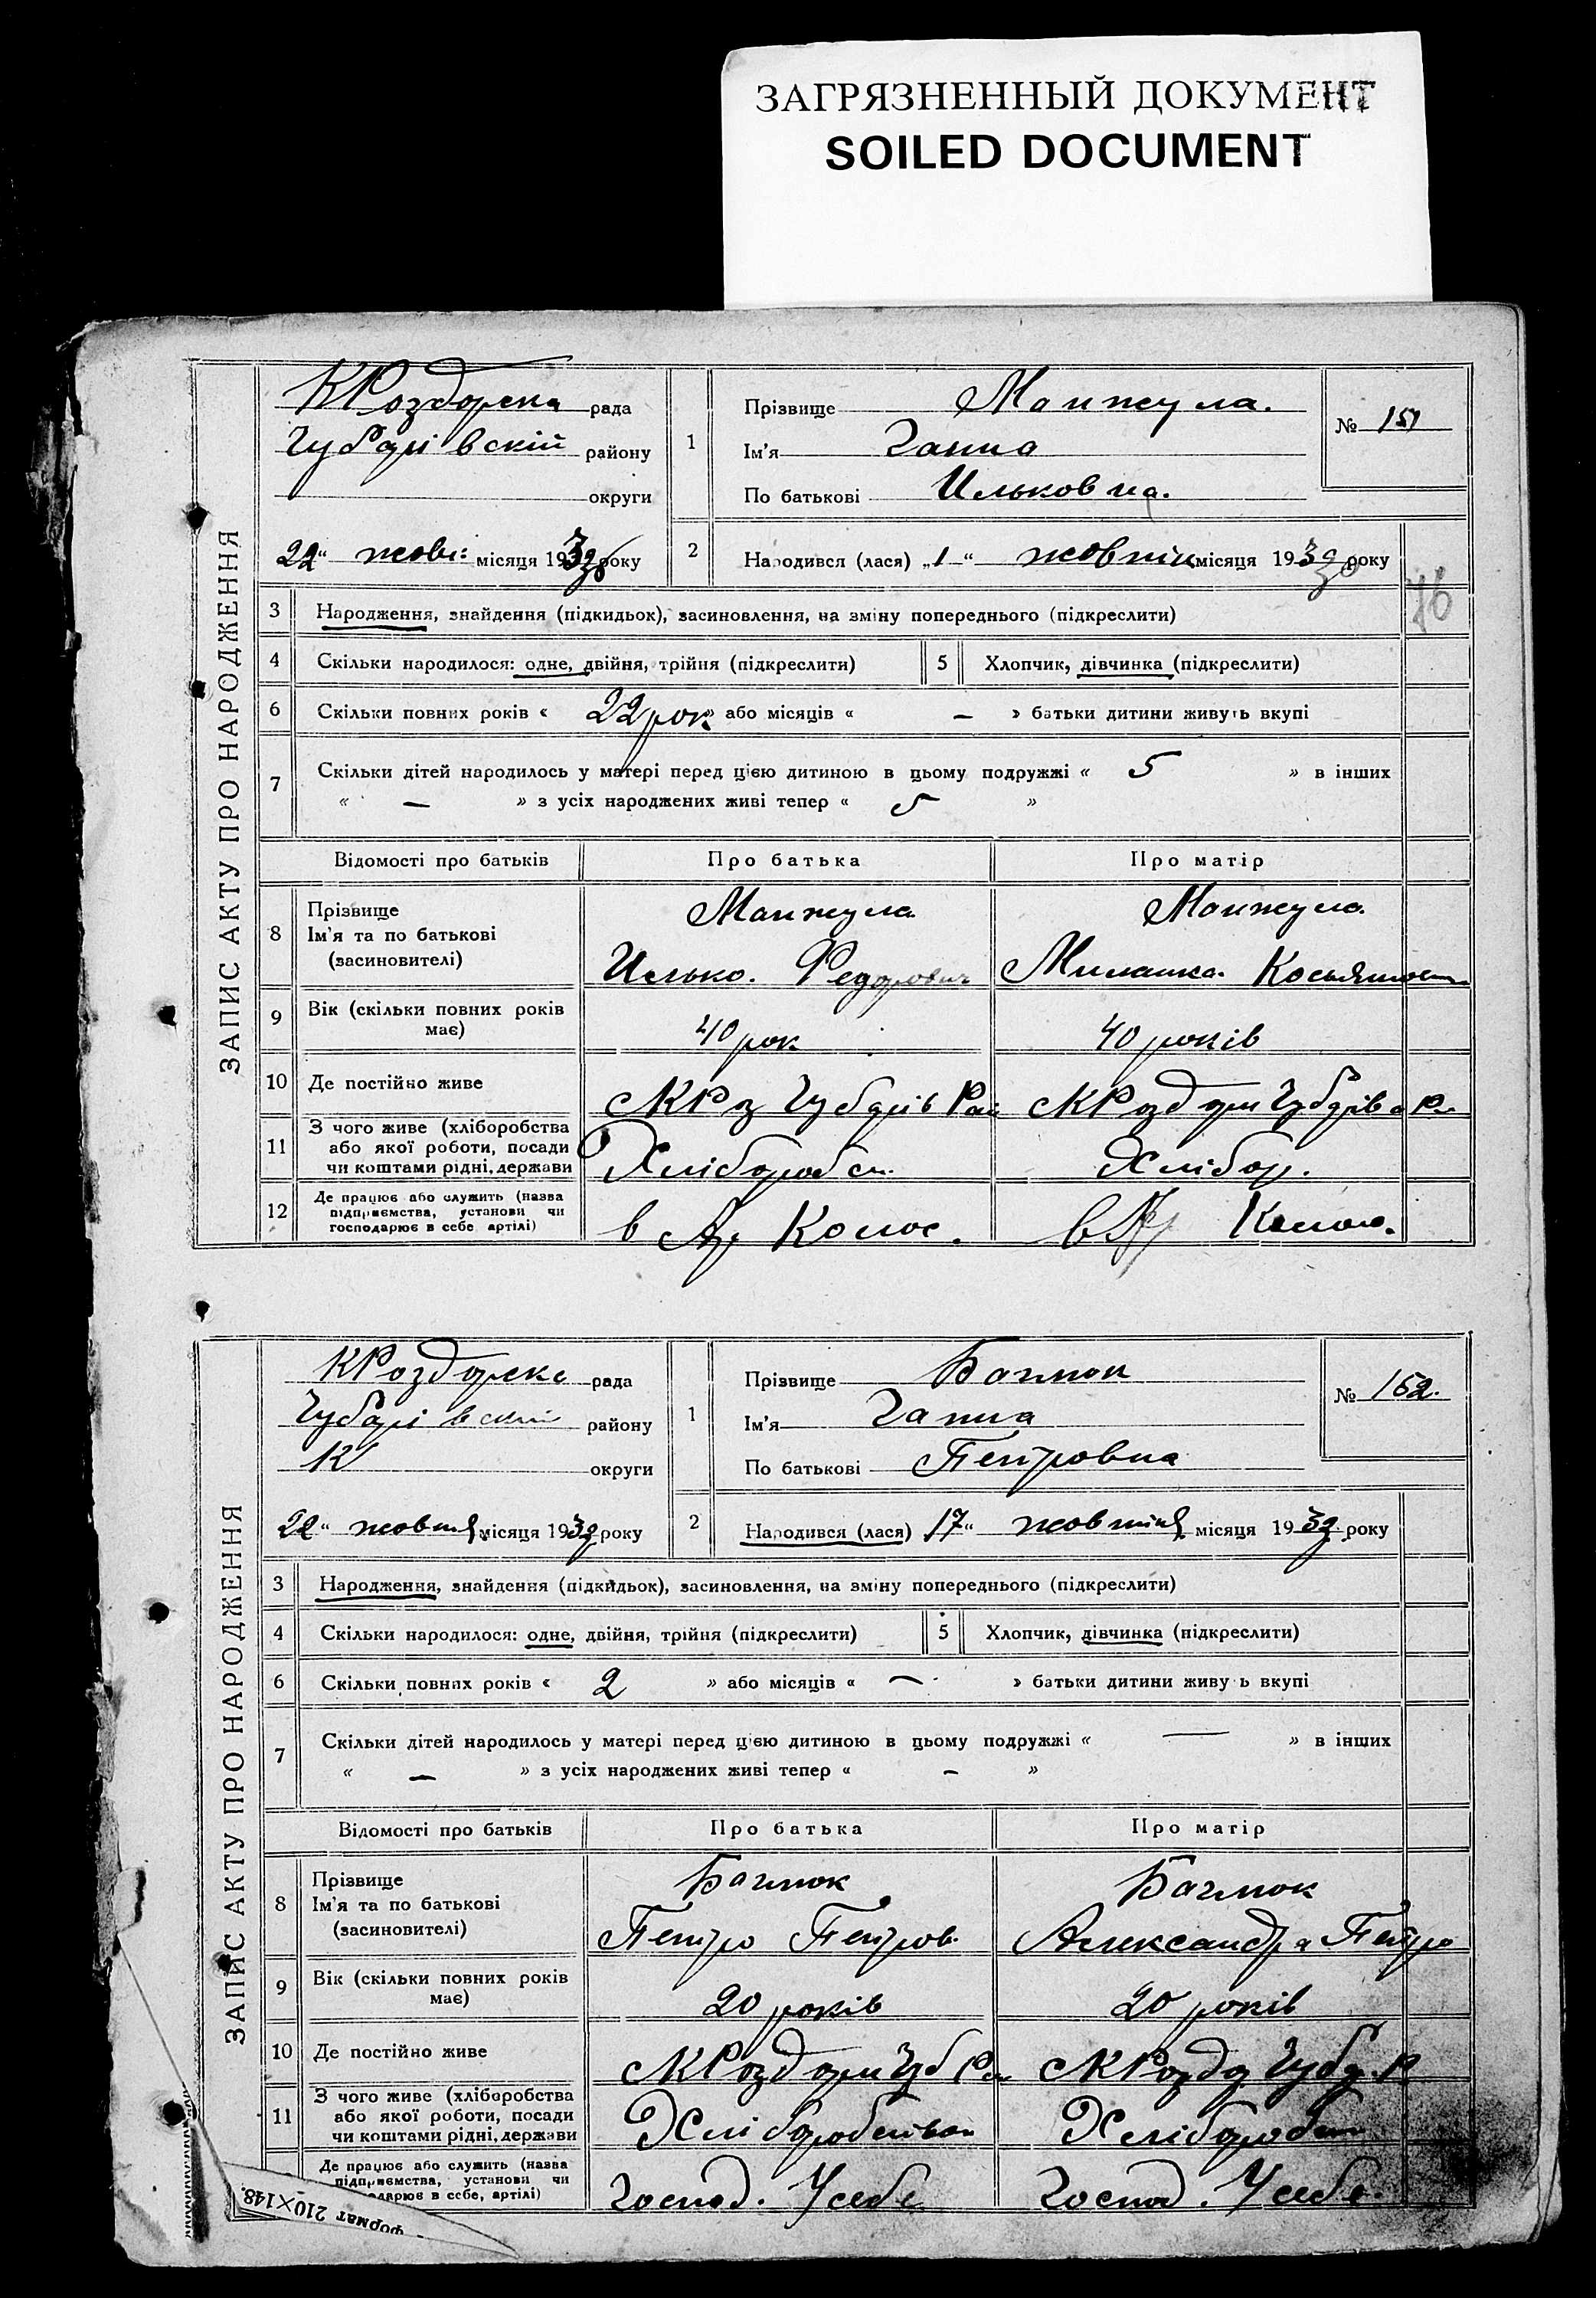 ЗАГРЯЗНЕННЫЙ ДОКУМЕНТ
SOILED DOCUMENT
ЗАПИС АКТУ ПРО НАРОДЖЕННЯ
КРоздорска рада
Чубарівскій району
округи
22 " жовт: місяця 1932 року
1
Прізвище Манжула.
Ім'я Ганна
По батькові Ильковна.
№ 151
2
Народився (лася) „1 " жовтня місяця 1932 року
76
3 Народження, знайдення (підкидьок), засиновлення, на зміну попереднього (підкреслити)
4 Скільки народилося: одне, двійня, трійня (підкреслити) 5 Хлопчик, дівчинка (підкреслити)
6 Скільки повних років « 22 рок » або місяців « — » батьки дитини живуть вкупі
7 Скільки дітей народилось у матері перед цією дитиною в цьому подружжі « 5 » в інших
« — » з усіх народжених живі тепер « 5 »
Відомості про батьків Про батька Про матір
8 Прізвище Ім'я та по батькові (засиновителі)
Манжула Манжула
Илько. Федорович Миланка.
9 Вік (скільки повних років має) 40 рок 40 років
10 Де постійно живе сКРоз Чубарів Рай сКРоздори Чубарів
11 З чого живе (хліборобства або якої роботи, посади чи коштами рідні, держави Хлібороб Хлібор.
12 Де працює або служить (назва підприємства, установи чи господарює в себе, артілі) в Ар Колос. в Ар Колос.
ЗАПИС АКТУ ПРО НАРОДЖЕННЯ
КРоздорска рада
Чубарівскій району
К округи
22 " жовтня місяця 1932 року
1
Прізвище
Ім'я Ганна
По батькові Петровна
№ 152.
2
Народився (лася) 17 " жовтня місяця 1932 року
3 Народження, знайдення (підкидьок), засиновлення, на зміну попереднього (підкреслити)
4 Скільки народилося: одне, двійня, трійня (підкреслити) 5 Хлопчик, дівчинка (підкреслити)
6 Скільки повних років « 2 » або місяців « — » батьки дитини живуть вкупі
7 Скільки дітей народилось у матері перед цією дитиною в цьому подружжі « — » в інших
« — » з усіх народжених живі тепер « — »
Відомості про батьків Про батька Про матір
8 Прізвище Ім'я та по батькові (засиновителі)
Петро Петров. Александра Петро
9 Вік (скільки повних років має) 20 років 20 років
10 Де постійно живе сКРоздори Чуб Ра сКРоздо Чубар Р
11 З чого живе (хліборобства або якої роботи, посади чи коштами рідні, держави Хліборобство Хлібороб
Де працює або служить (назва підприємства, установи чи господарює в себе, артілі) Господ. У себе Господ. У себе.
формат 210×148.